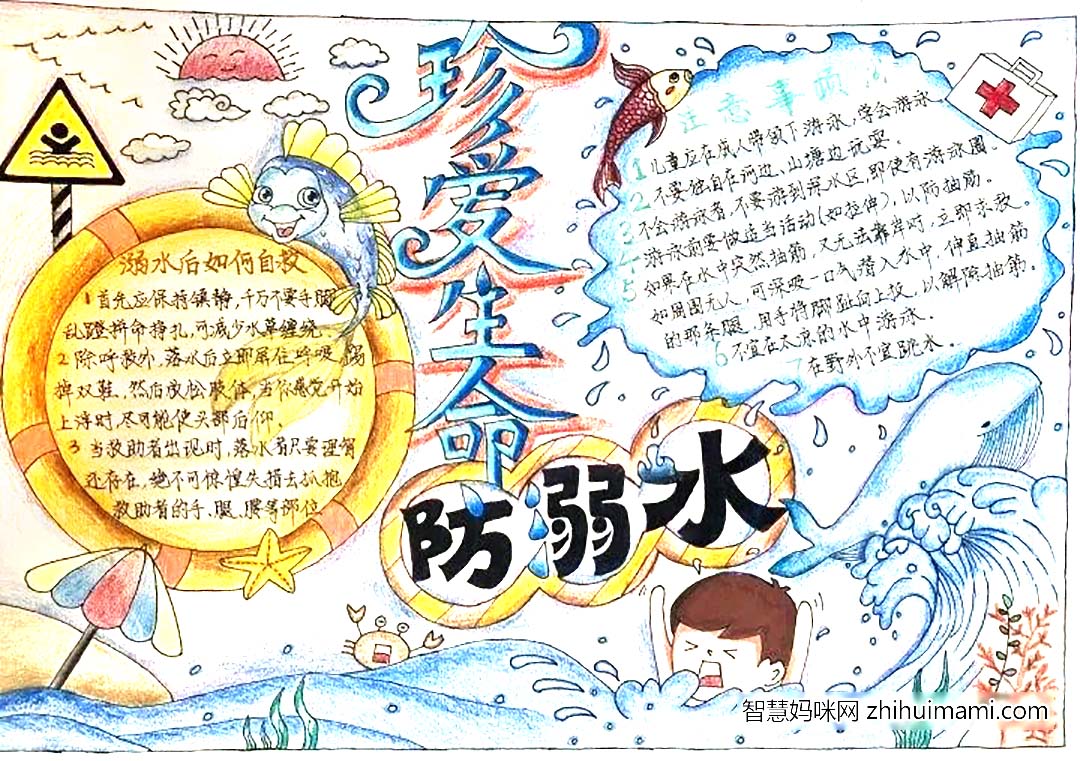 珍爱生命
防溺水
溺水后如何自救
1 首先应保持镇静,千万不要手脚
乱蹬拼命挣扎,可减少水草缠绕.
2 除呼救外,落水后立即屏住呼吸,踢
掉双鞋,然后放松肢体,当你感觉开始
上浮时,尽可能使头部后仰.
3 当救助者出现时,落水者只要理智
还存在,绝不可惊惶失措去抓抱
救助者的手、腿、腰等部位
注意事项
1 儿童应在成人带领下游泳,学会游泳
2 不要独自在河边、山塘边玩耍.
3 不会游泳者,不要游到深水区,即使有游泳圈.
4 游泳前要做适当活动(如拉伸),以防抽筋.
5 如果在水中突然抽筋,又无法靠岸时,立即求救.
如周围无人,可深吸一口气潜入水中,伸直抽筋
的那条腿,用手将脚趾向上扳,以解除抽筋.
6 不宜在太凉的水中游泳.
7 在野外不宜跳水.
智慧妈咪网 zhihuimami.com